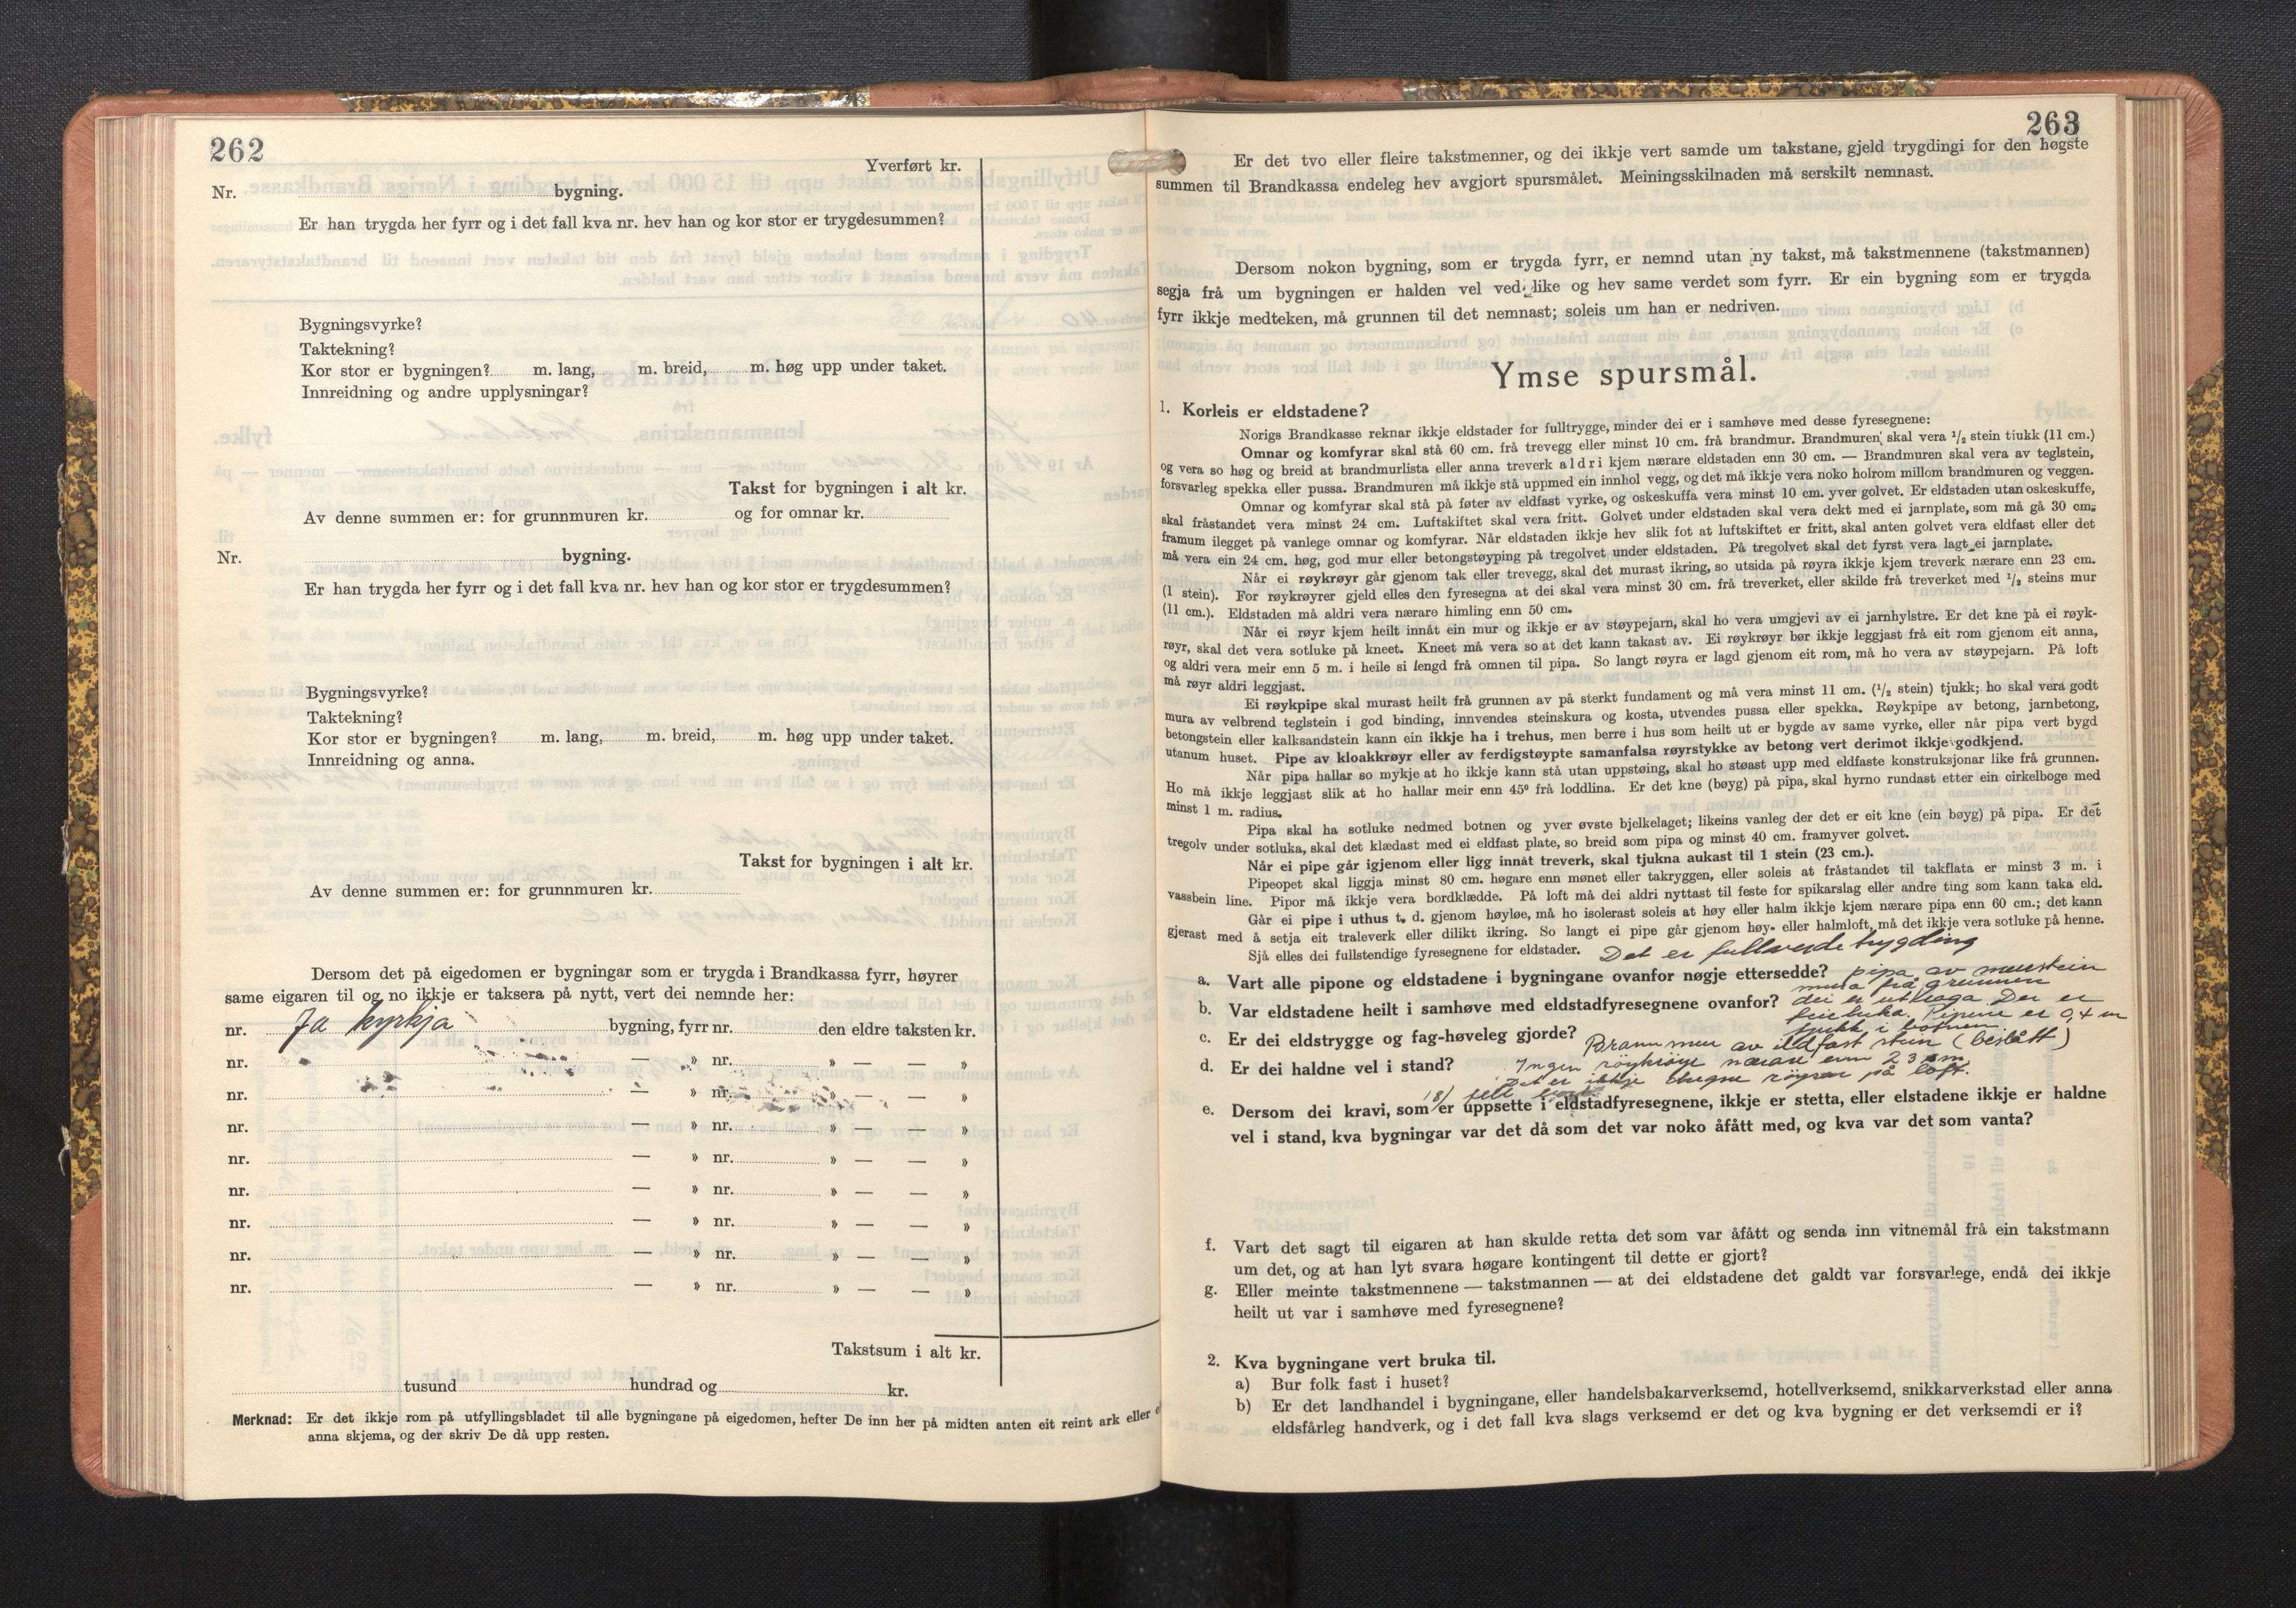 262
Yverført kr.
Nr. bygning.
Er han trygda her fyrr og i det fall kva nr. hev han og kor stor er trygdesummen?
Bygningsvyrke?
Taktekning?
Kor stor er bygningen? m. lang, m. breid, m. høg upp under taket.
Innreidning og andre upplysningar?
Takst for bygningen i alt kr.
Av denne summen er: for grunnmuren kr. og for omnar kr.
Nr. bygning.
Er han trygda her fyrr og i det fall kva nr. hev han og kor stor er trygdesummen?
Bygningsvyrke?
Taktekning?
Kor stor er bygningen? m. lang, m. breid, m. høg upp under taket.
Innreidning og anna.
Takst for bygningen i alt kr.
Av denne summen er: for grunnmuren kr.
Dersom det på eigedomen er bygningar som er trygda i Brandkassa fyrr, høyrer
same eigaren til og no ikkje er taksera på nytt, vert dei nemnde her:
nr. Ja kyrkja bygning, fyrr nr. den eldre taksten kr.
nr. — » nr. » — — »
nr. — » nr. » — — »
nr. — » nr. » — — »
nr. — » nr. » — — »
nr. — » nr. » — — »
nr. — » nr. » — — »
nr. — » nr. » — — »
nr. — » nr. » — — »
Takstsum i alt kr.
tusund hundrad og kr.
Merknad: Er det ikkje rom på utfyllingsbladet til alle bygningane på eigedomen, hefter De inn her på midten anten eit reint ark eller
anna skjema, og der skriv De då upp resten.
263
Er det tvo eller fleire takstmenner, og dei ikkje vert samde um takstane, gjeld trygdingi for den høgste
summen til Brandkassa endeleg hev avgjort spursmålet. Meiningsskilnaden må serskilt nemnast.
Dersom nokon bygning, som er trygda fyrr, er nemnd utan ny takst, må takstmennene (takstmannen)
segja frå um bygningen er halden vel ved like og hev same verdet som fyrr. Er ein bygning som er trygda
fyrr ikkje medteken, må grunnen til det nemnast; soleis um han er nedriven.
Ymse spursmål.
1. Korleis er eldstadene?
Norigs Brandkasse reknar ikkje eldstader for fulltrygge, minder dei er i samhøve med desse fyresegnene:
Omnar og komfyrar skal stå 60 cm. frå trevegg eller minst 10 cm. frå brandmur. Brandmuren skal vera ½ stein tjukk (11 cm.)
og vera so høg og breid at brandmurlista eller anna treverk aldri kjem nærare eldstaden enn 30 cm. — Brandmuren skal vera av teglstein,
forsvarleg spekka eller pussa. Brandmuren må ikkje stå uppmed ein innhol vegg, og det må ikkje vera noko holrom millom brandmuren og veggen.
Omnar og komfyrar skal stå på føter av eldfast vyrke, og oskeskuffa vera minst 10 cm. yver golvet. Er eldstaden utan oskeskuffe,
skal fråstandet vera minst 24 cm. Luftskiftet skal vera fritt. Golvet under eldstaden skal vera dekt med ei jarnplate, som må gå 30 cm.
framum ilegget på vanlege omnar og komfyrar. Når eldstaden ikkje hev slik fot at luftskiftet er fritt, skal anten golvet vera eldfast eller det
må vera ein 24 cm. høg, god mur eller betongstøyping på tregolvet under eldstaden. På tregolvet skal det fyrst vera lagt ei jarnplate.
Når ei røykrøyr går gjenom tak eller trevegg, skal det murast ikring, so utsida på røyra ikkje kjem treverk nærare enn 23 cm.
(1 stein). For røykrøyrer gjeld elles den fyresegna at dei skal vera minst 30 cm. frå treverket, eller skilde frå treverket med ½ steins mur
(11 cm.). Eldstaden må aldri vera nærare himling enn 50 cm.
Når ei røyr kjem heilt innåt ein mur og ikkje er av støypejarn, skal ho vera umgjevi av ei jarnhylstre. Er det kne på ei røyk-
røyr, skal det vera sotluke på kneet. Kneet må vera so at det kann takast av. Ei røykrøyr bør ikkje leggjast frå eit rom gjenom eit anna,
og aldri vera meir enn 5 m. i heile si lengd frå omnen til pipa. So langt røyra er lagd gjenom eit rom, må ho vera av støypejarn. På loft
må røyr aldri leggjast.
Ei røykpipe skal murast heilt frå grunnen av på sterkt fundament og må vera minst 11 cm. (½ stein) tjukk; ho skal vera godt
mura av velbrend teglstein i god binding, innvendes steinskura og kosta, utvendes pussa eller spekka. Røykpipe av betong, jarnbetong,
betongstein eller kalksandstein kann ein ikkje ha i trehus, men berre i hus som heilt ut er bygde av same vyrke, eller når pipa vert bygd
utanum huset. Pipe av kloakkrøyr eller av ferdigstøypte samanfalsa røyrstykke av betong vert derimot ikkje godkjend.
Når pipa hallar so mykje at ho ikkje kann stå utan uppstøing, skal ho støast upp med eldfaste konstruksjonar like frå grunnen.
Ho må ikkje leggjast slik at ho hallar meir enn 45° frå loddlina. Er det kne (bøyg) på pipa, skal hyrno rundast etter ein cirkelboge med
minst 1 m. radius.
Pipa skal ha sotluke nedmed botnen og yver øvste bjelkelaget; likeins vanleg der det er eit kne (ein bøyg) på pipa. Er det
tregolv under sotluka, skal det klædast med ei eldfast plate, so breid som pipa og minst 40 cm. framyver golvet.
Når ei pipe går igjenom eller ligg innåt treverk, skal tjukna aukast til 1 stein (23 cm.).
Pipeopet skal liggja minst 80 cm. høgare enn mønet eller takryggen, eller soleis at fråstandet til takflata er minst 3 m. i
vassbein line. Pipor må ikkje vera bordklædde. På loft må dei aldri nyttast til feste for spikarslag eller andre ting som kann taka eld.
Går ei pipe i uthus t. d. gjenom høyløe, må ho isolerast soleis at høy eller halm ikkje kjem nærare pipa enn 60 cm.; det kann
gjerast med å setja eit traleverk eller dilikt ikring. So langt ei pipe går gjenom høy- eller halmloft, må det ikkje vera sotluke på henne.
Sjå elles dei fullstendige fyresegnene for eldstader. Det er fullverdetrygding
a. Vart alle pipone og eldstadene i bygningane ovanfor nøgje ettersedde? pipa av murstein
mura frå grunnen
b. Var eldstadene heilt i samhøve med eldstadfyresegnene ovanfor? dei er utkraga Der er
feieluka. Pipene er 0,4 m
tjukk i botnen.
c. Er dei eldstrygge og fag-høveleg gjorde? Brannmur av ildfast stein (beslått)
d. Er dei haldne vel i stand? Ingen røykrøyr nærare enn 23 cm.
Det er ikkje røyrer på loft.
e. Dersom dei kravi, som er uppsette i eldstadfyresegnene, ikkje er stetta, eller elstadene ikkje er haldne
vel i stand, kva bygningar var det då som det var noko åfått med, og kva var det som vanta?
f. Vart det sagt til eigaren at han skulde retta det som var åfått og senda inn vitnemål frå ein takstmann
um det, og at han lyt svara høgare kontingent til dette er gjort?
g. Eller meinte takstmennene — takstmannen — at dei eldstadene det galdt var forsvarlege, endå dei ikkje
heilt ut var i samhøve med fyresegnene?
2. Kva bygningane vert bruka til.
a) Bur folk fast i huset?
b) Er det landhandel i bygningane, eller handelsbakarverksemd, hotellverksemd, snikkarverkstad eller anna
eldsfårleg handverk, og i det fall kva slags verksemd er det og kva bygning er det verksemdi er i?